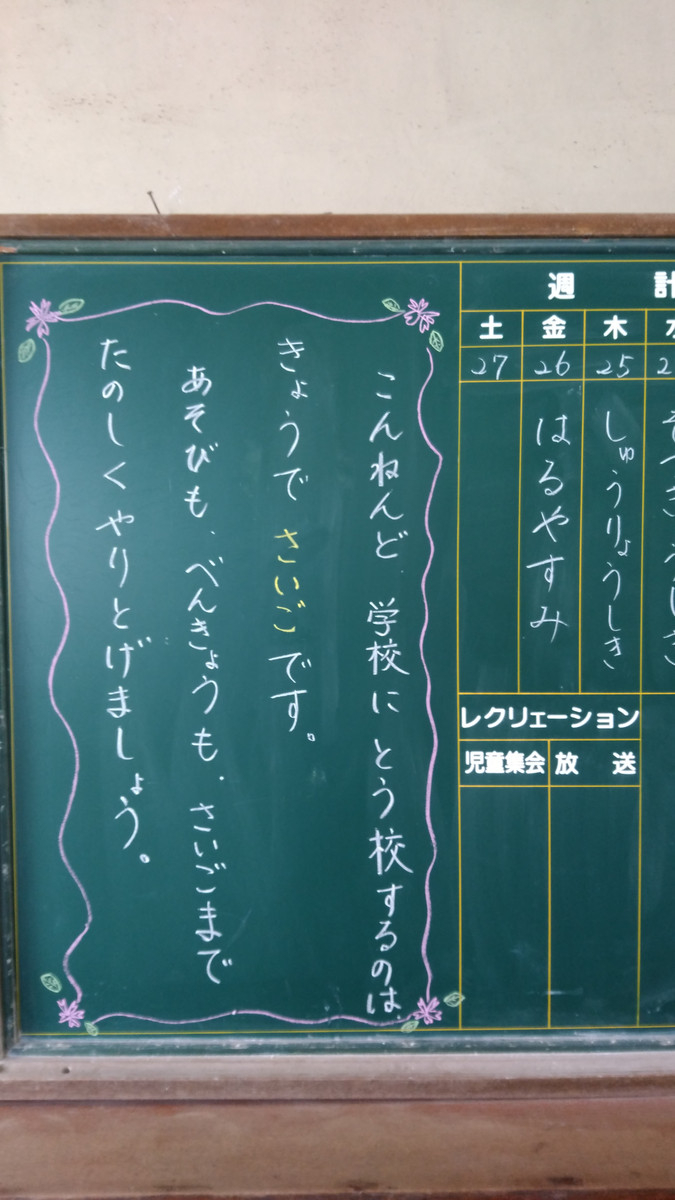 週 計
土 金 木
27 26 25 2
はるやすみ
しゅうりょうしき
レクリェーション
児童集会 放送
こんねんど、学校にとう校するのは、
きょうでさいごです。
あそびも、べんきょうも、さいごまで
たのしくやりとげましょう。